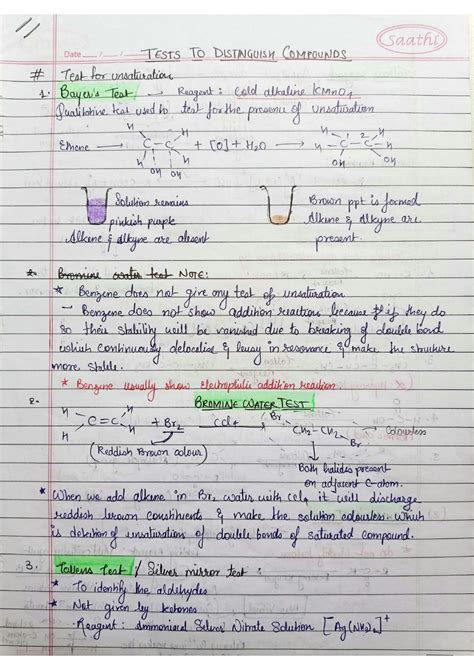 Saathi
Date ___/___/___
TESTS TO DISTINGUISH COMPOUNDS
# Test for unsaturation
1. Bayer's Test → Reagent: Cold alkaline KMnO4
Qualitative test used to test for the presence of unsaturation
Ethene → H H C - C H H OH OH + [O] + H2O → H 1 2 H H - C - C - H OH OH
Solution remains
pinkish purple
Alkene & Alkyne are absent
Brown ppt is formed
Alkene & Alkyne are
present.
2. Bromine water test NOTE:
* Benzene does not give any test of unsaturation
- Benzene does not show addition reaction because if they do
so their stability will be vanished due to breaking of double bond
which continuously delocalise & being in resonance & make the structure
more stable.
* Benzene usually show electrophilic addition reaction
2. BROMINE WATER TEST
H H C = C H H + Br2 CCl4 → Br CH2 - CH2 Br → Colourless
(Reddish Brown colour)
Both halides present
on adjacent C-atom.
* When we add alkene in Br2 water with CCl4 it will discharge
reddish brown constituents & make the solution colourless. Which
is detection of unsaturation of double bonds of saturated compound.
3. Tollens Test / Silver mirror test:
* To identify the aldehydes
* Not given by ketones
- Reagent: Ammoniacal Silver Nitrate Solution [Ag(NH3)2]+